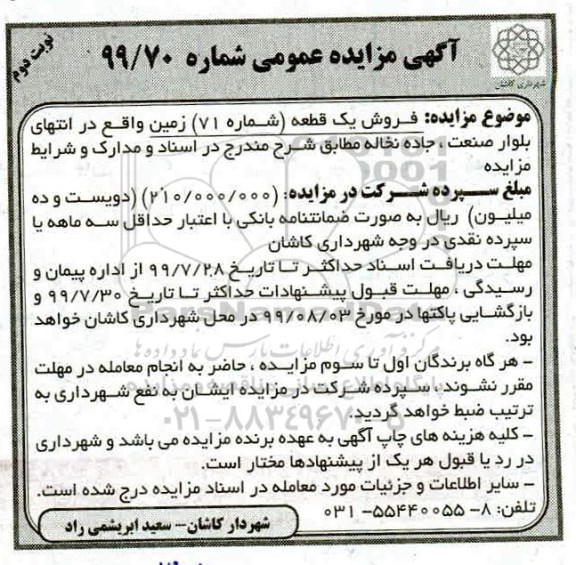 نوبت دوم
آگهی مزایده عمومی شماره ۹۹/۷۰
شهرداری کاشان
موضوع مزایده: فروش یک قطعه (شماره ۷۱) زمین واقع در انتهای
بلوار صنعت ، جاده نخاله مطابق شرح مندرج در اسناد و مدارک و شرایط
مزایده
مبلغ سپرده شرکت در مزایده: (۲۱۰/۰۰۰/۰۰۰) (دویست و ده
میلیون) ریال به صورت ضمانتنامه بانکی با اعتبار حداقل سه ماهه یا
سپرده نقدی در وجه شهرداری کاشان
مهلت دریافت اسناد حداکثر تا تاریخ ۹۹/۷/۲۸ از اداره پیمان و
رسیدگی ، مهلت قبول پیشنهادات حداکثر تا تاریخ ۹۹/۷/۳۰ و
بازگشایی پاکتها در مورخ ۹۹/۰۸/۰۳ در محل شهرداری کاشان خواهد
بود.
- هر گاه برندگان اول تا سوم مزایده ، حاضر به انجام معامله در مهلت
مقرر نشوند، سپرده شرکت در مزایده ایشان به نفع شهرداری به
ترتیب ضبط خواهد گردید.
- کلیه هزینه های چاپ آگهی به عهده برنده مزایده می باشد و شهرداری
در رد یا قبول هر یک از پیشنهادها مختار است.
- سایر اطلاعات و جزئیات مورد معامله در اسناد مزایده درج شده است.
تلفن: ۸- ۵۵۴۴۰۰۵۵-۰۳۱
شهردار کاشان- سعید ابریشمی راد
ParsNamadData
مرکز فرآوری اطلاعات پارس نماد داده ها
۰۲۱-۸۸۳۴۹۶۷۰-۵